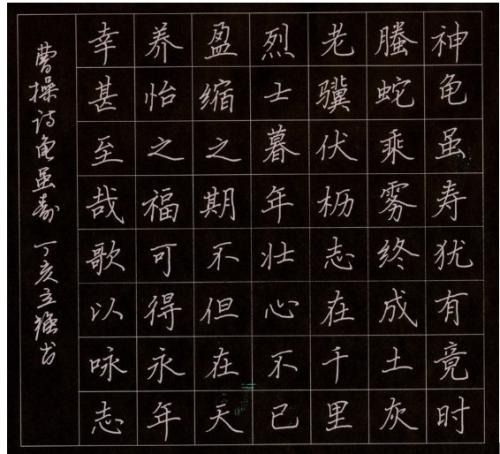 神龟虽寿犹有竟时
螣蛇乘雾终成土灰
老骥伏枥志在千里
烈士暮年壮心不已
盈缩之期不但在天
养怡之福可得永年
幸甚至哉歌以咏志
曹操诗龟虽寿 丁亥立强书